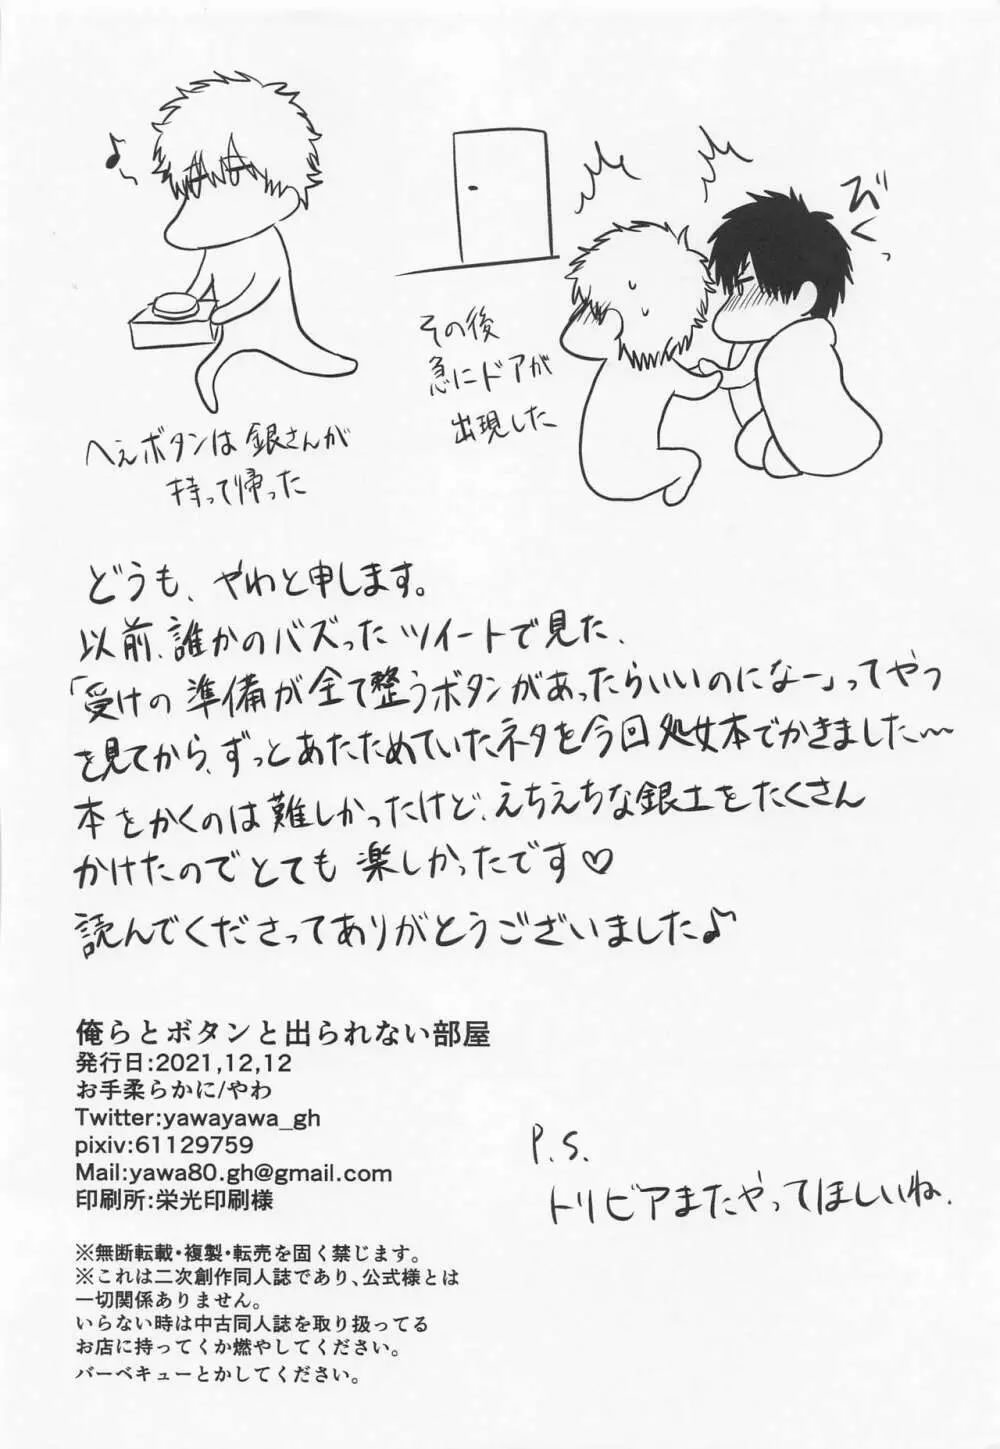 びくっ
その後
急にドアが
出現した
へぇボタンは銀さんが
持って帰った
どうも、やわと申します。
以前、誰かのバズったツイートで見た、
「受けの準備が全て整うボタンがあったらいいのになー」ってやつ
を見てから、ずっとあたためていたネタを今回処女本でかきました〜
本をかくのは難しかったけど、えちえちな銀土をたくさん
かけたのでとても楽しかったです♡
読んでくださってありがとうございました♪
俺らとボタンと出られない部屋
発行日:2021,12,12
お手柔らかに/やわ
Twitter:yawayawa_gh
pixiv:61129759
Mail:yawa80.gh@gmail.com
印刷所:栄光印刷様
P.S.
トリビアまたやってほしいね.
※無断転載・複製・転売を固く禁じます。
※これは二次創作同人誌であり、公式様とは
一切関係ありません。
いらない時は中古同人誌を取り扱ってる
お店に持ってくか燃やしてください。
バーベキューとかしてください。